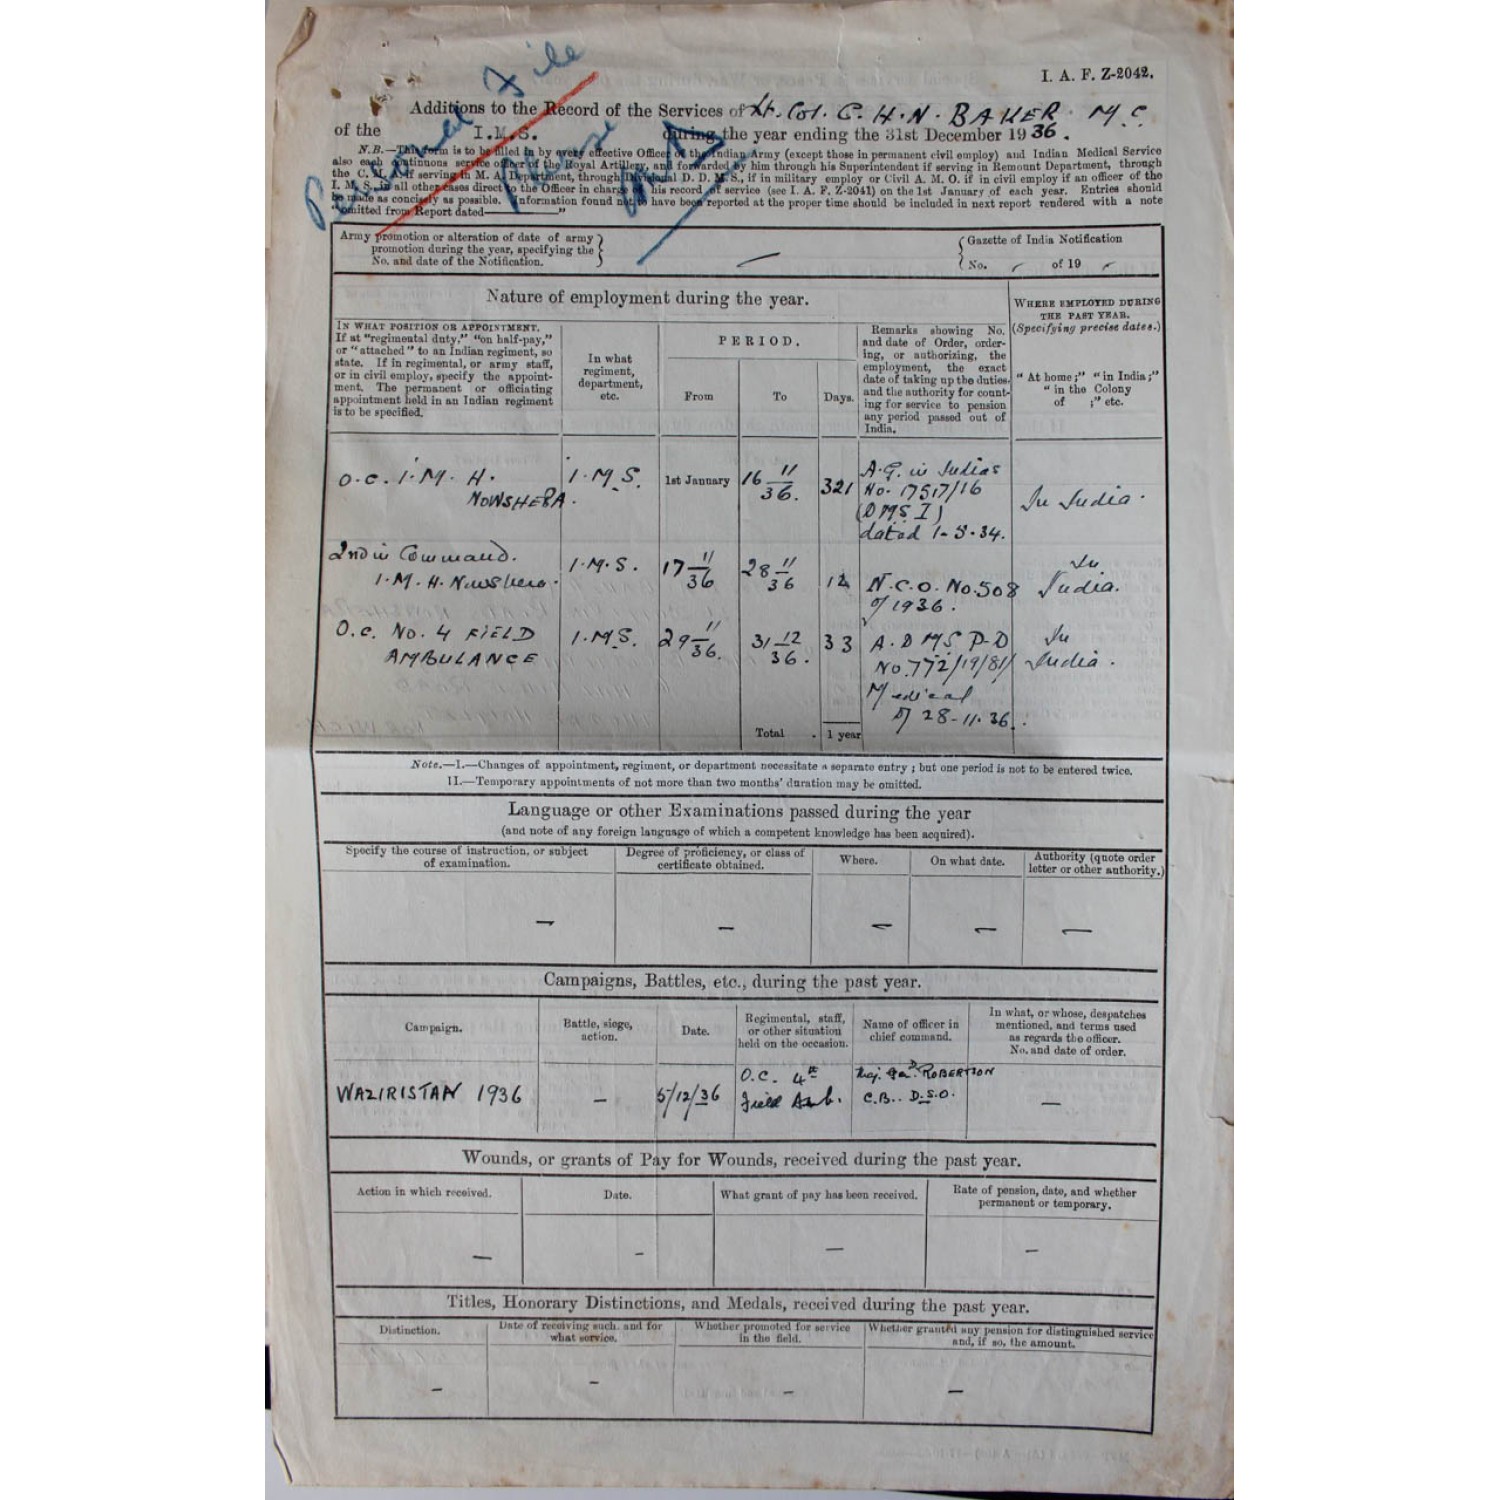 I. A. F. Z-2042.
Personal File
Additions to the Record of the Services of Lt. Col. C. H. N. BAKER M.C.
of the I.M.S. during the year ending the 31st December 1936.
N.B.—This form is to be filled in by every effective Officer of the Indian Army (except those in permanent civil employ) and Indian Medical Service
also each continuous service officer of the Royal Artillery, and forwarded by him through his Superintendent if serving in Remount Department, through
the C. M. A. if serving in M. A. Department, through Divisional D. D. M. S., if in military employ or Civil A. M. O. if in civil employ if an officer of the
I. M. S., in all other cases direct to the Officer in charge of his record of service (see I. A. F. Z-2041) on the 1st January of each year. Entries should
be made as concisely as possible. Information found not to have been reported at the proper time should be included in next report rendered with a note
"omitted from Report dated————"
Army promotion or alteration of date of army
promotion during the year, specifying the
No. and date of the Notification.
—
Gazette of India Notification
No. of 19
Nature of employment during the year.
WHERE EMPLOYED DURING
THE PAST YEAR.
(Specifying precise dates.)
IN WHAT POSITION OR APPOINTMENT.
If at "regimental duty," "on half-pay,"
or "attached" to an Indian regiment, so
state. If in regimental, or army staff,
or in civil employ, specify the appoint-
ment. The permanent or officiating
appointment held in an Indian regiment
is to be specified.
In what
regiment,
department,
etc.
PERIOD.
From
To
Days.
Remarks showing No.
and date of Order, order-
ing, or authorizing, the
employment, the exact
date of taking up the duties,
and the authority for count-
ing for service to pension
any period passed out of
India.
"At home;" "in India;"
"in the Colony
of ;" etc.
O.C. I.M.H.
NOWSHERA.
I.M.S.
1st January
16 11/36.
321
A.G. in Indias
No. 17517/16
(DMS I)
dated 1-5-34.
In India.
2nd in Command.
I.M.H. Nowshera.
I.M.S.
17 11/36
28 11/36
12
N.C.O. No. 508
of 1936.
In
India.
O.C. No. 4 FIELD
AMBULANCE
I.M.S.
29 11/36.
31 12/36.
33
A.D MS P-D
No. 772/19/81/
Medical
of 28-11-36.
In
India.
Total . 1 year
Note.—I.—Changes of appointment, regiment, or department necessitate a separate entry; but one period is not to be entered twice.
II.—Temporary appointments of not more than two months' duration may be omitted.
Language or other Examinations passed during the year
(and note of any foreign language of which a competent knowledge has been acquired).
Specify the course of instruction, or subject
of examination.
Degree of proficiency, or class of
certificate obtained.
Where.
On what date.
Authority (quote order
letter or other authority.)
— — — — —
Campaigns, Battles, etc., during the past year.
Campaign.
Battle, siege,
action.
Date.
Regimental, staff,
or other situation
held on the occasion.
Name of officer in
chief command.
In what, or whose, despatches
mentioned, and terms used
as regards the officer.
No. and date of order.
WAZIRISTAN 1936
—
5/12/36
O.C. 4th
Field Amb.
Maj. Gen. ROBERTSON
C.B.. D.S.O.
—
Wounds, or grants of Pay for Wounds, received during the past year.
Action in which received.
Date.
What grant of pay has been received.
Rate of pension, date, and whether
permanent or temporary.
— — — —
Titles, Honorary Distinctions, and Medals, received during the past year.
Distinction.
Date of receiving such. and for
what service.
Whether promoted for service
in the field.
Whether granted any pension for distinguished service
and, if so, the amount.
— — — —